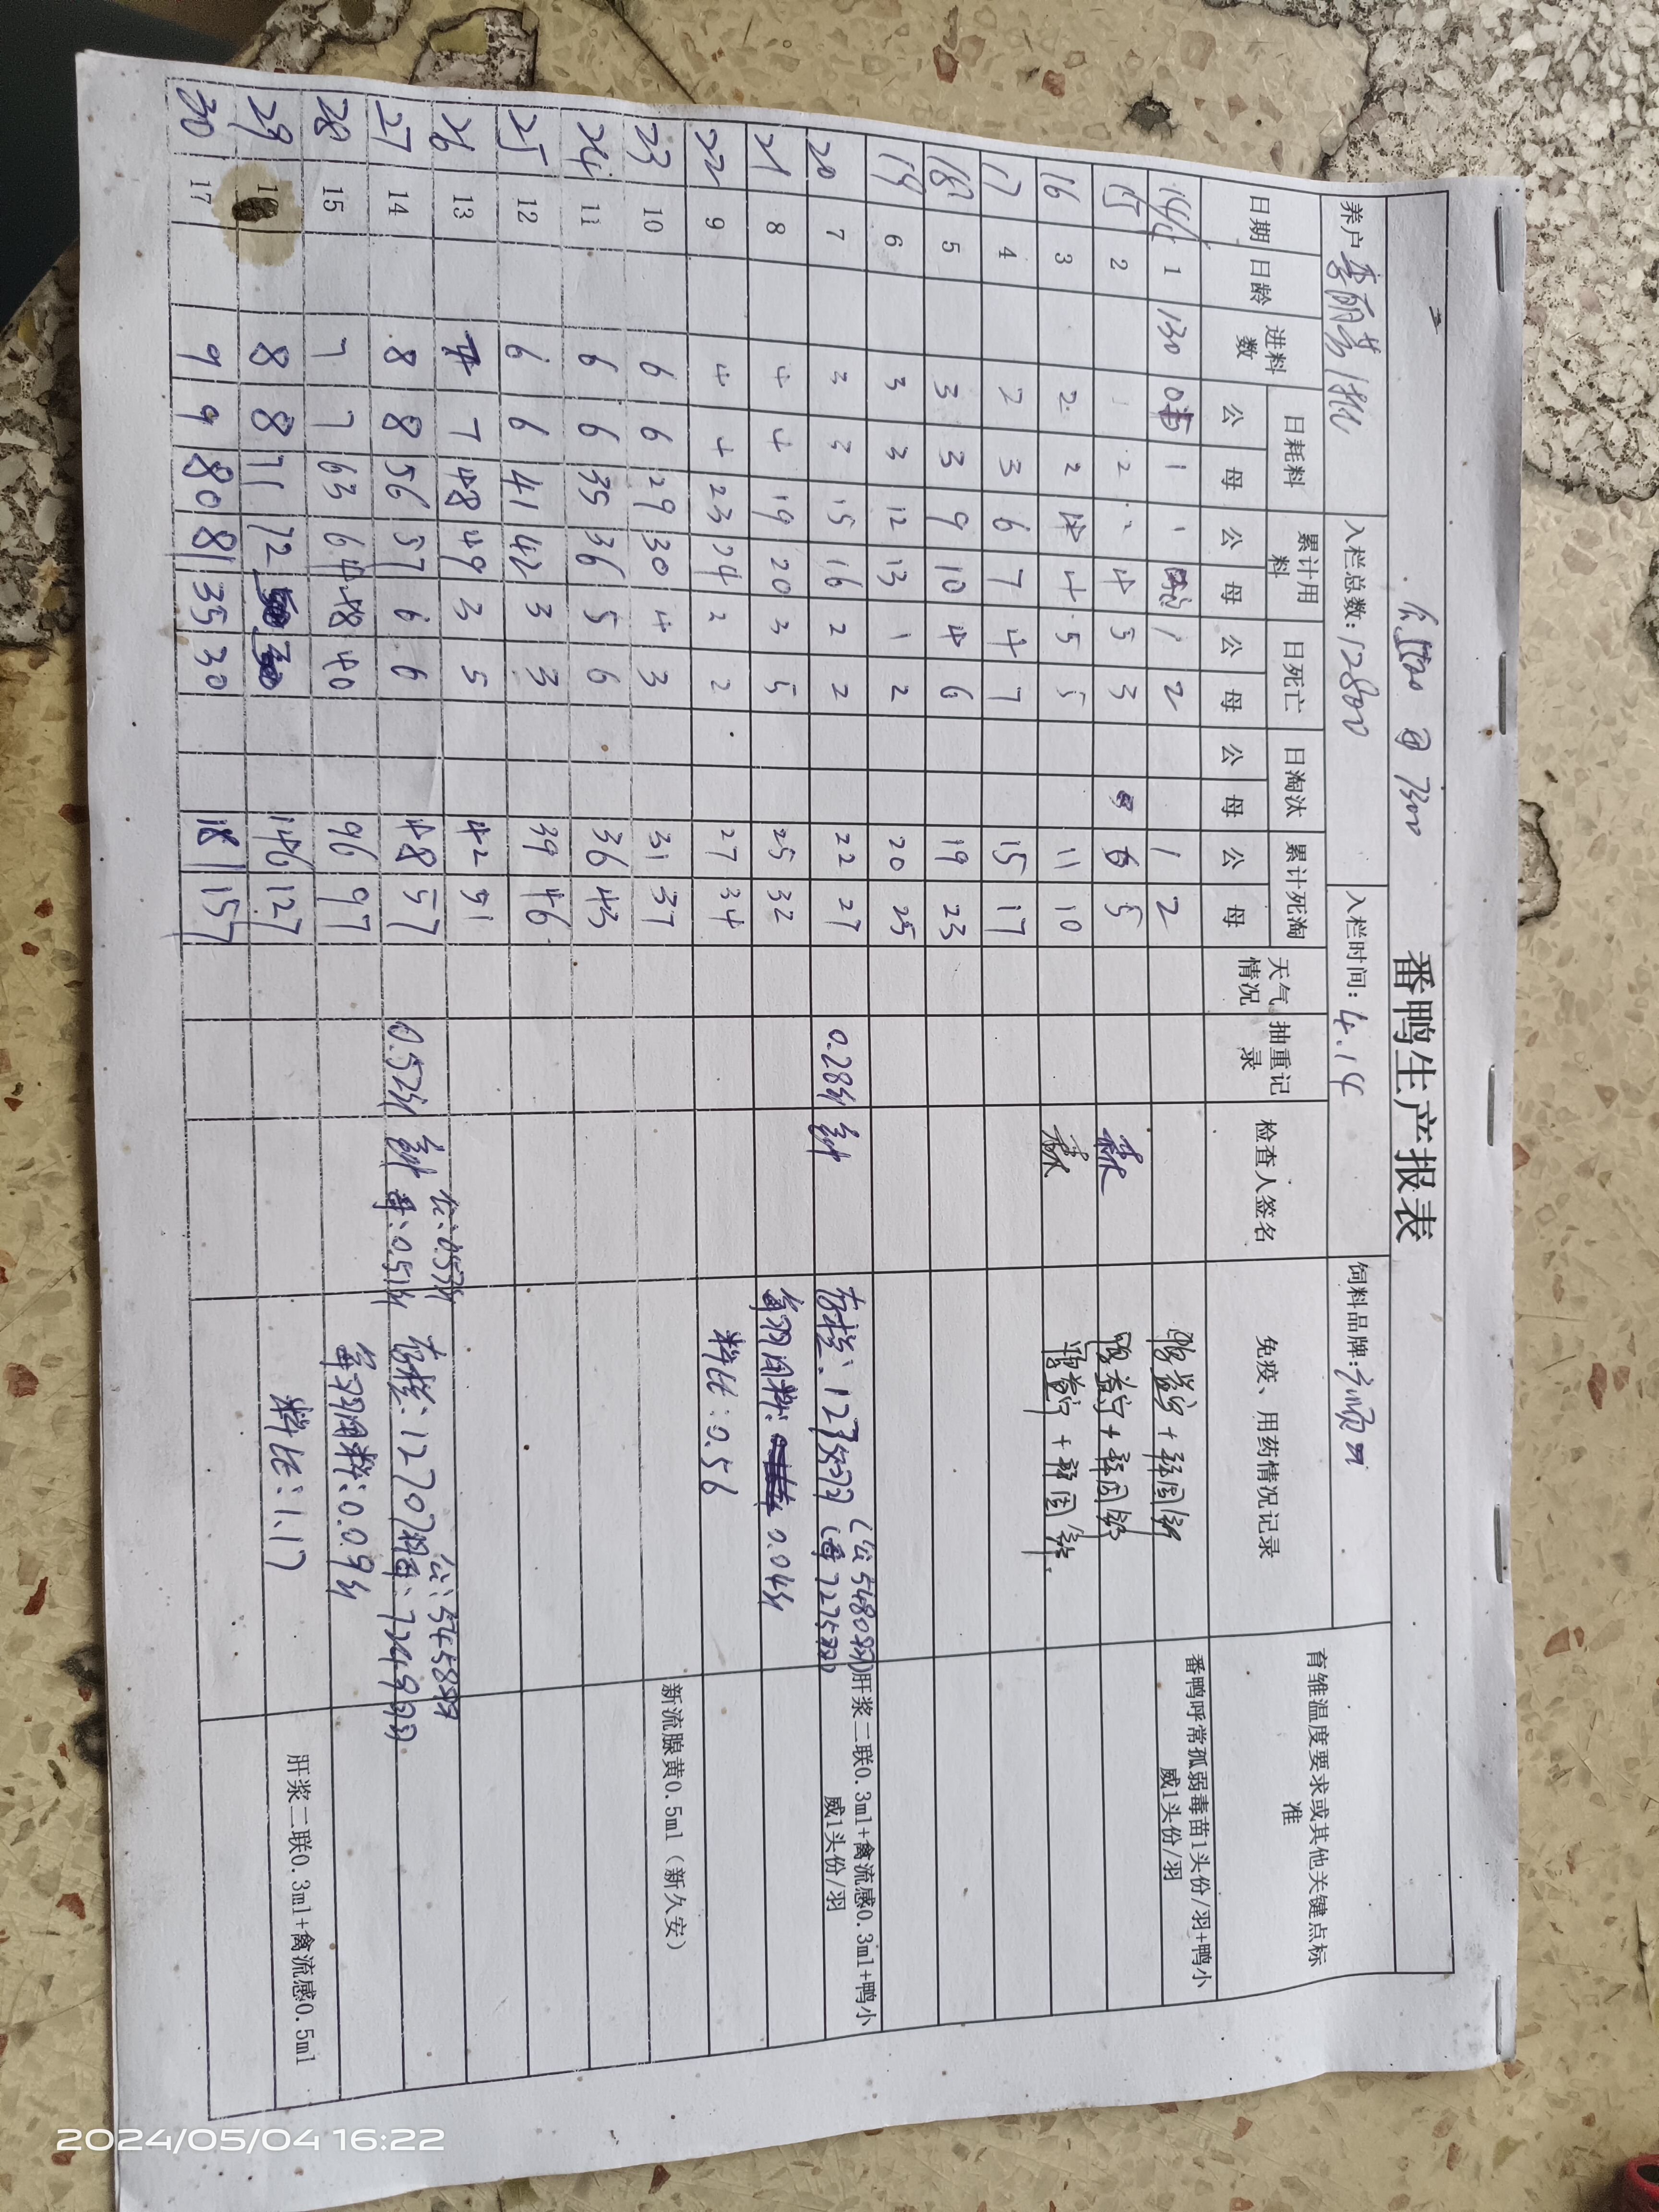 公5500 母7300
番鸭生产报表
养户 入栏总数:12800 入栏时间:4.14 饲料品牌:
日期 日龄 进料数 日耗料 累计用料 日死亡 日淘汰 累计死淘 天气情况 抽重记录 检查人签名 免疫、用药情况记录 育雏温度要求或其他关键点标准
公 母 公 母 公 母 公 母 公 母
14/4 1 130 1 1 1 2 1 2 番鸭呼常孤弱毒苗1头份/羽+鸭小威1头份/羽
15 2 1 2 4 5 3 5
16 3 2 2 4 4 5 5 11 10
17 4 2 3 6 7 4 7 15 17
18 5 3 3 9 10 4 6 19 23
19 6 3 3 12 13 1 2 20 25
20 7 3 3 15 16 2 2 22 27 0.28斤 存栏: (公5480羽) (母7275羽) 肝浆二联0.3ml+禽流感0.3ml+鸭小威1头份/羽
21 8 4 4 19 20 3 5 25 32 每羽用料: 0.04斤
22 9 4 4 23 24 2 2 27 34 料比:0.56
23 10 6 6 29 30 4 3 31 37 新流腺黄0.5ml（新久安）
24 11 6 6 35 36 5 6 36 43
25 12 6 6 41 42 3 3 39 46
26 13 7 48 49 3 5 42 51
27 14 8 8 56 57 6 6 48 57 0.52斤 公:0.53斤 母:0.51斤 存栏:12707羽 公:5458羽 母:7249羽
28 15 7 7 63 64 48 40 96 97 每羽用料:0.09斤
29 8 8 71 72 146 127 料比:1.17 肝浆二联0.3ml+禽流感0.5ml
30 17 9 9 80 81 35 30 181 157
2024/05/04 16:22